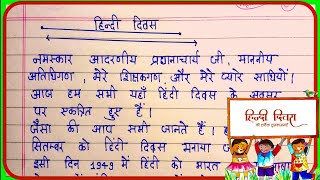 हिन्दी दिवस
नमस्कार आदरणीय प्रधानाचार्य जी, माननीय
अतिथिगण, मेरे शिक्षकगण, और मेरे प्यारे साथियों!
आज हम सभी यहाँ हिंदी दिवस के अवसर
पर एकत्रित हुए हैं।
जैसा की आप सभी जानते हैं।
सितम्बर को हिंदी दिवस मनाया
इसी दिन 1949 में हिंदी को भारत
हिन्दी दिवस